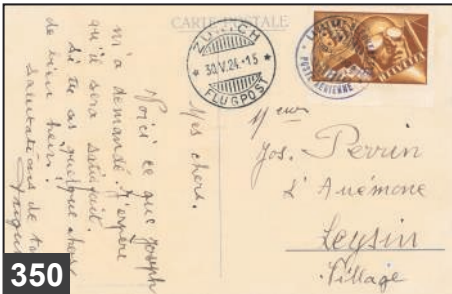 CARTE POSTALE
ZÜRICH
30.V.24.-15
FLUGPOST
POSTE AERIENNE
HELVETIA
Mes chers.
Voici ce que Joseph
m'a demandé. J'espère
qu'il sera satisfait.
Si tu as quelque chose
de bien
Salutations de
Jos. Perrin
L'Anémone
Leysin
Village
350